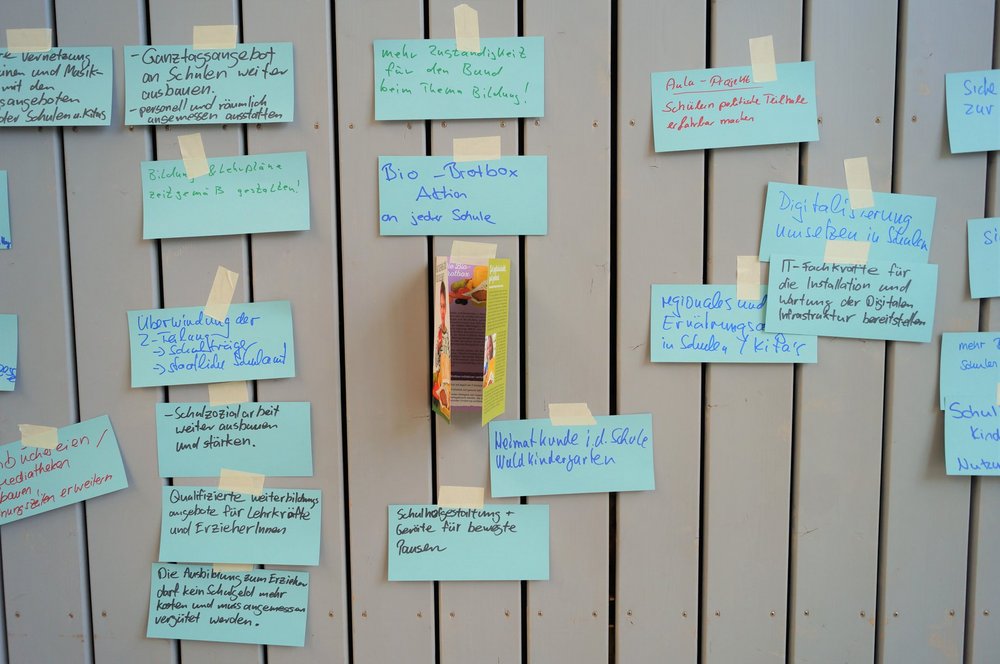 Vernetzung
und Musik-
mit den
angeboten
der Schulen u. Kitas
- Ganztagsangebot
an Schulen weiter
ausbauen.
- personell und räumlich
angemessen ausstatten
Bildung & Lehrpläne
zeitgemäß gestalten!
Überwindung der
2-Teilung
→ Schulträger
→ staatliches Schulamt
- Schulzozialarbeit
weiter ausbauen
und stärken.
Qualifizierte weiterbildungs
angebote für Lehrkräfte
und ErzieherInnen
Die Ausbildung zum Erzieher
darf kein Schulgeld mehr
kosten und muss angemessen
vergütet werden.
büchereien /
mediatheken
erweitern
mehr Zuständigkeit
für den Bund
beim Thema Bildung!
Bio - Brotbox
Aktion
an jeder Schule
Heimatkunde i.d. Schule
Waldkindergarten
Schulhofgestaltung +
Geräte für bewegte
Pausen
Aula - Projekte
Schülern politische Teilhabe
erfahrbar machen
Digitalisierung
Umsetzen in Schulen
IT-Fachkräfte für
die Installation und
Wartung der Digitalen
Infrastruktur bereitstellen
regionales und
Ernährungs
in Schulen / Kitas
zur
mehr
Schulen
Nutzu